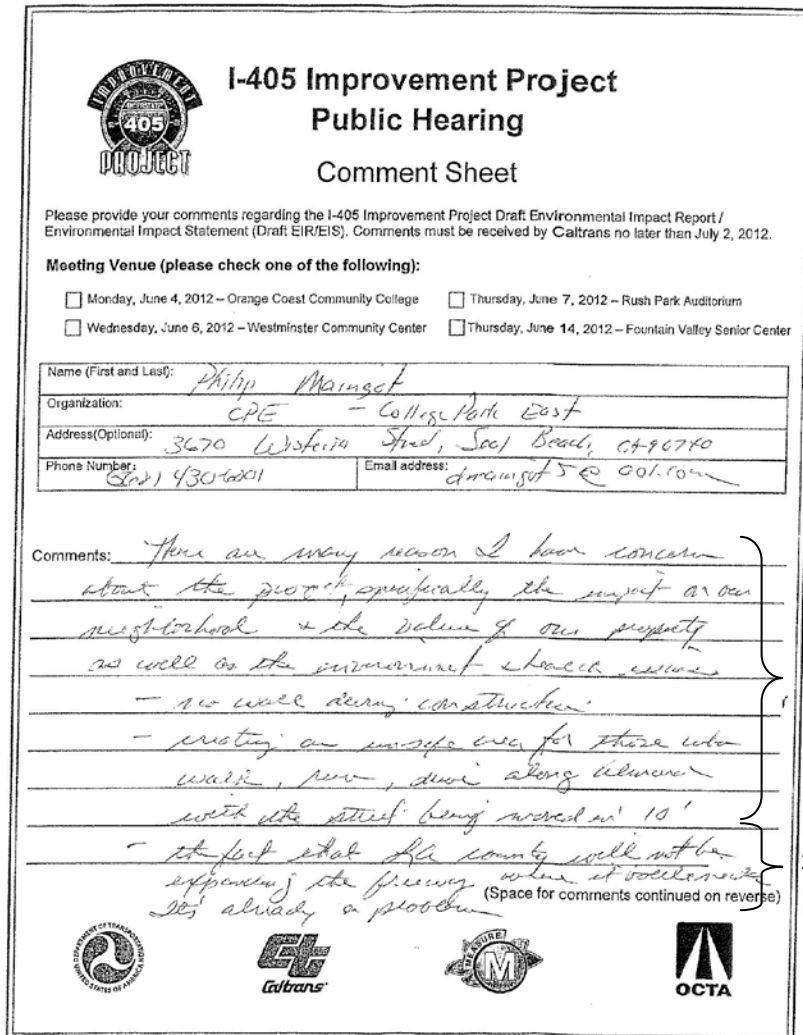 I-405 Improvement Project
Public Hearing
Comment Sheet
IMPROVEMENT
INTERSTATE
405
PROJECT
Please provide your comments regarding the I-405 Improvement Project Draft Environmental Impact Report /
Environmental Impact Statement (Draft EIR/EIS). Comments must be received by Caltrans no later than July 2, 2012.
Meeting Venue (please check one of the following):
Monday, June 4, 2012 – Orange Coast Community College
Thursday, June 7, 2012 – Rush Park Auditorium
Wednesday, June 6, 2012 – Westminster Community Center
Thursday, June 14, 2012 – Fountain Valley Senior Center
Name (First and Last): Philip Maingot
Organization: CPE - College Park East
Address(Optional): 3670 Wisteria Street, Seal Beach, CA 90740
Phone Number: 430-6201
Email address: dmaingot5@aol.com
Comments: There are many reason I have concern
about the project, specifically the impact on our
neighborhood & the value of our property
as well as the environment & health issues
- no wall during construction
- creating an unsafe area for those who
walk, run, drive along
with the street being moved in 10'
- the fact that LA county will not be
expanding the freeway where it
It's already a problem
(Space for comments continued on reverse)
DEPARTMENT OF TRANSPORTATION
UNITED STATES OF AMERICA
Caltrans
MEASURE
M
OCTA